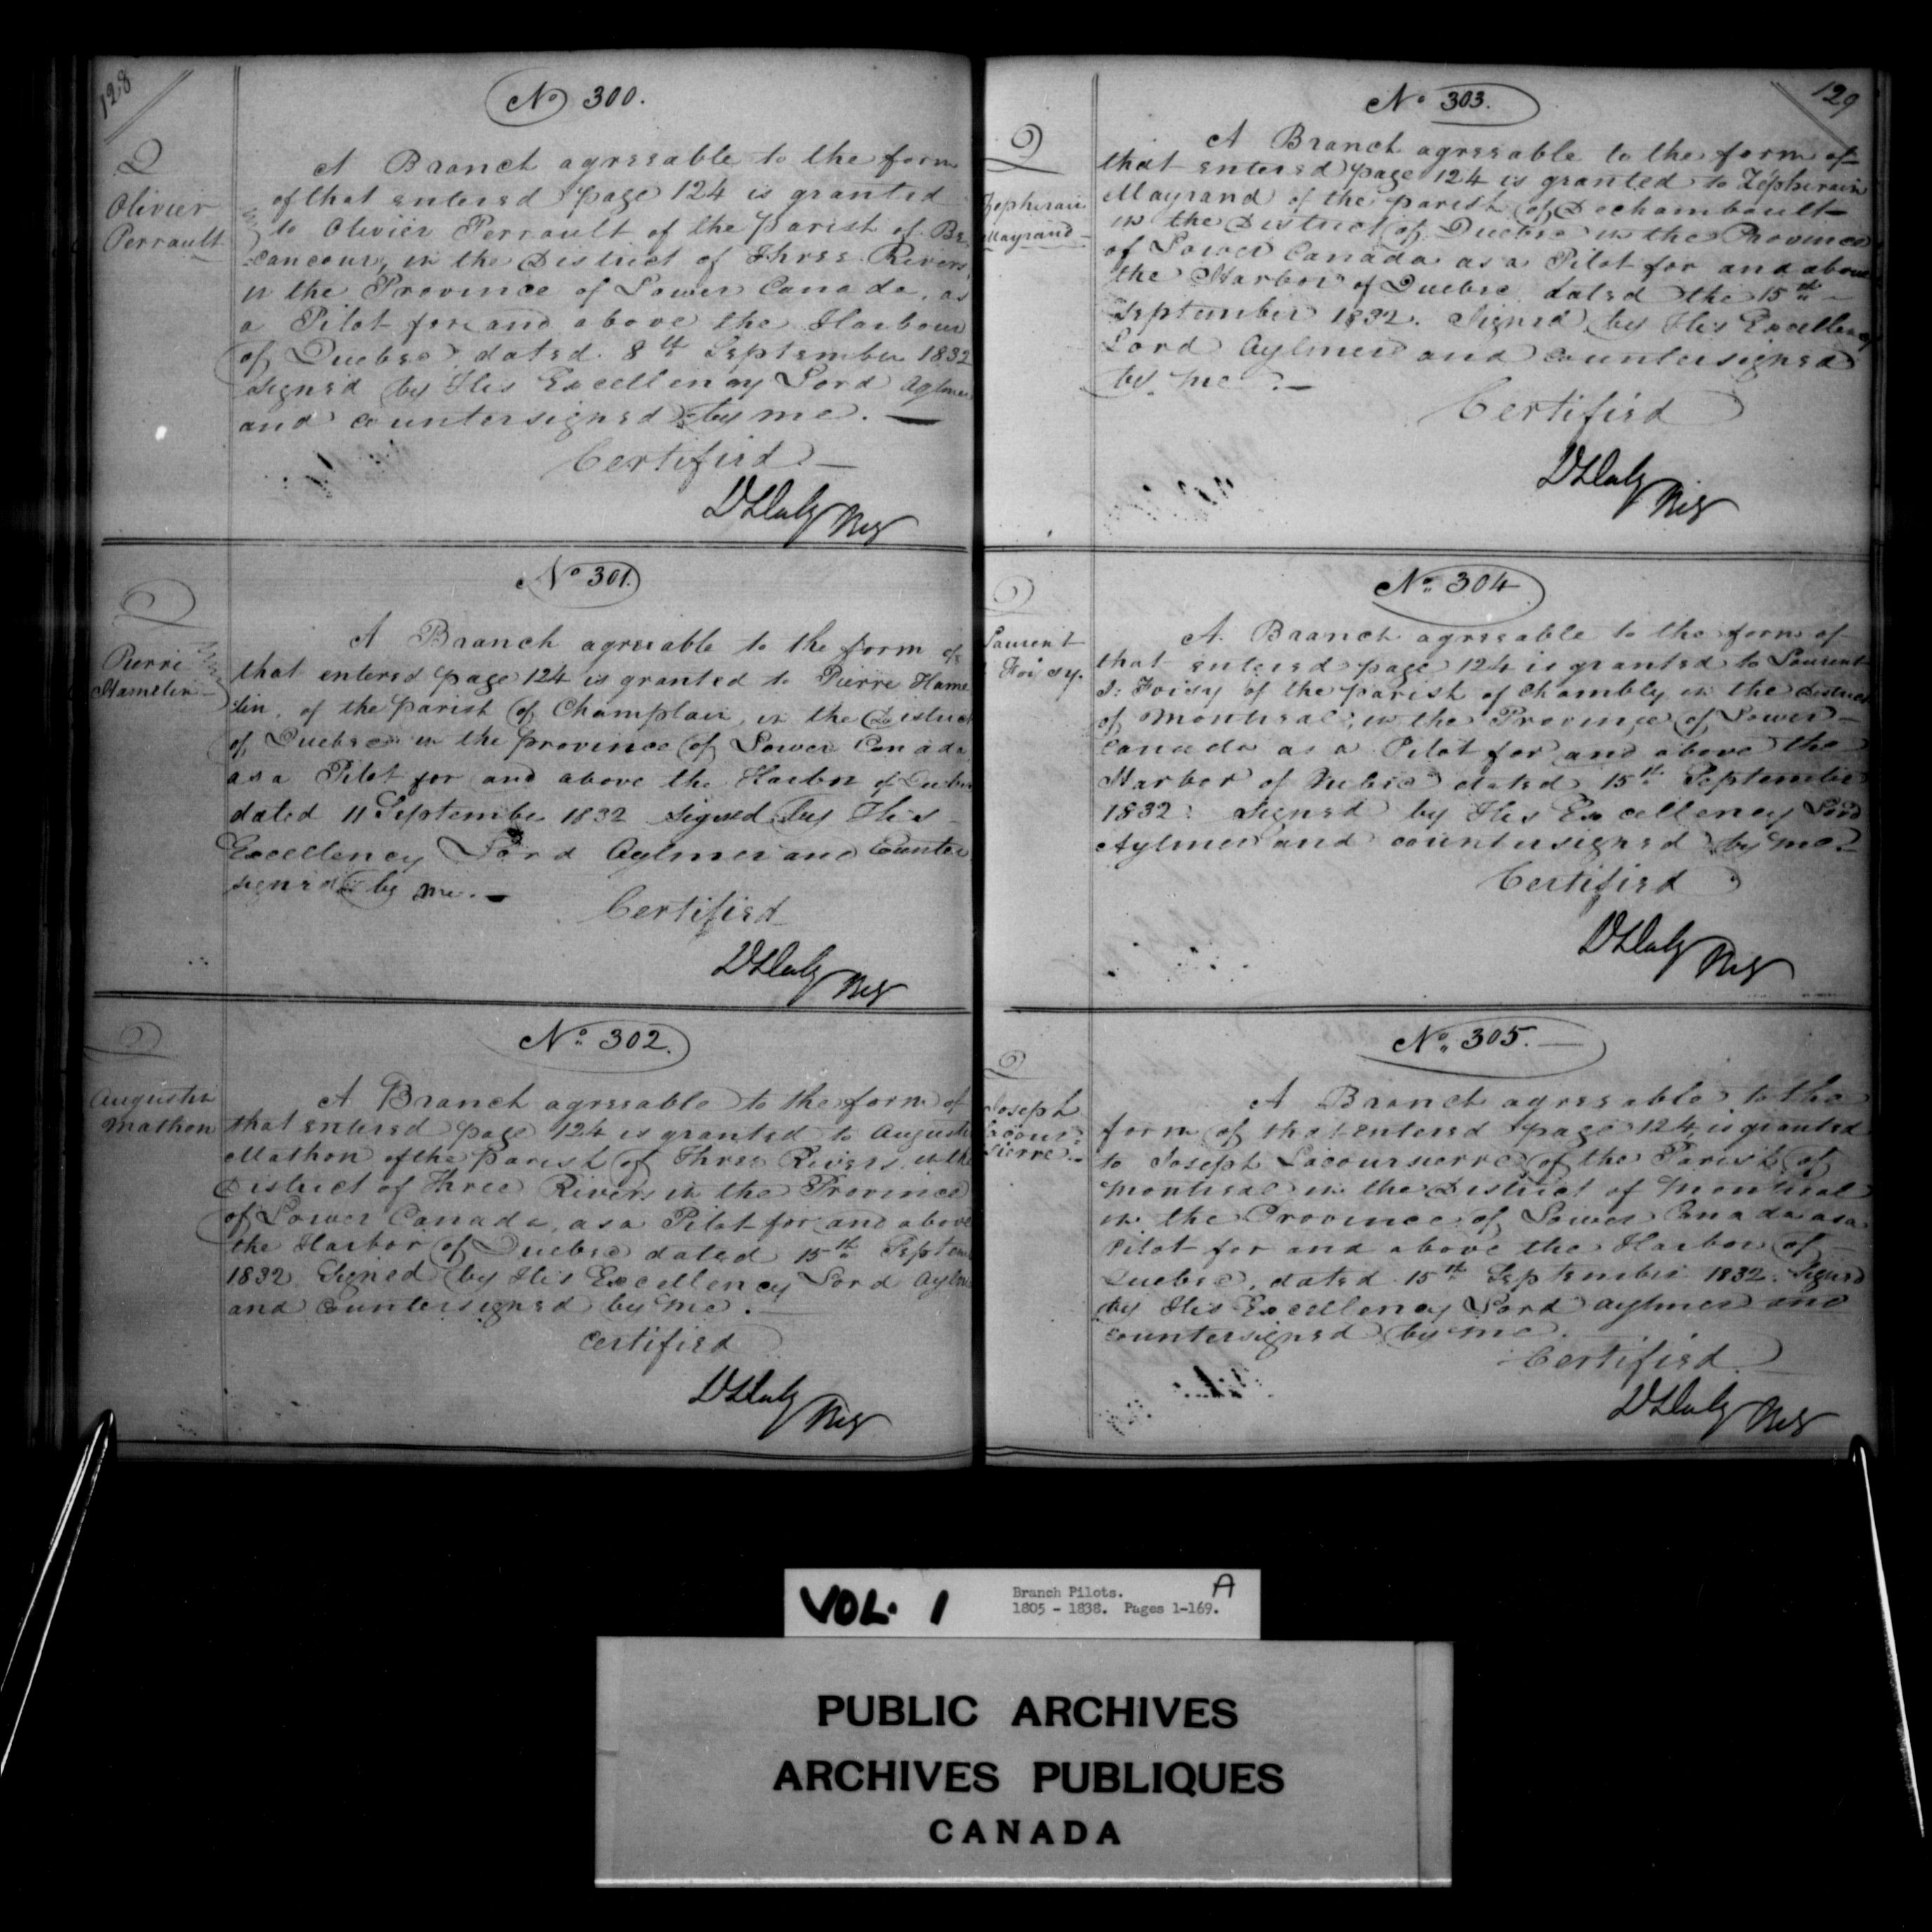 128
No 300.
Olivier
Perrault
A Branch agreeable to the form
of that entered page 124 is granted
to Olivier Perrault of the parish of Be
cancour, in the District of Three Rivers,
in the Province of Lower Canada, as
a Pilot for and above the Harbour
of Quebec, dated 8th September 1832
signed by His Excellency Lord Aylmer
and countersigned by me. —
Certified —
D Daly Reg
No 301.
Pierre
Hamelin
A Branch agreeable to the form of
that entered page 124 is granted to Pierre Hame
lin, of the parish of Champlain, in the District
of Quebec in the province of Lower Canada
as a Pilot for and above the Harbor of Quebec
dated 11 September 1832 signed by His
Excellency Lord Aylmer and Counter
signed by me. —
Certified
D Daly Reg
No 302.
Augustin
Mathon
A Branch agreeable to the form of
that entered page 124 is granted to Augustin
Mathon of the parish of Three Rivers in the
District of Three Rivers in the Province
of Lower Canada, as a Pilot for and above
the Harbor of Quebec dated 15th Septem
1832 Signed by His Excellency Lord Aylmer
and Countersigned by me. —
Certified
D Daly Reg
129
No 303.
Zepherain
Mayrand
A Branch agreeable to the form of
that entered page 124 is granted to Zepherain
Mayrand of the parish of Dechambault
in the District of Quebec in the Province
of Lower Canada as a Pilot for and above
the Harbor of Quebec dated the 15th
September 1832. Signed by His Excellency
Lord Aylmer and countersigned
by me. —
Certified
D Daly Reg
No 304
Laurent
Foisy.
A Branch agreeable to the form of
that entered page 124 is granted to Laurent
I: Foisy of the parish of Chambly in the District
of Montreal, in the Province of Lower
Canada as a Pilot for and above the
Harbor of Quebec dated 15th September
1832: Signed by His Excellency Lord
Aylmer and countersigned by me.
Certified
D Daly Reg
No 305. —
Joseph
Lacour
sierre.
A Branch agreeable to the
form of that entered page 124 is granted
to Joseph Lacoursierre of the Parish of
Montreal in the District of Montreal
in the Province of Lower Canada as a
Pilot for and above the Harbor of
Quebec, dated 15th September 1832. Signed
by His Excellency Lord Aylmer and
countersigned by me.
Certified
D Daly Reg
VOL. 1
Branch Pilots.
1805 - 1838. Pages 1-169.
A
PUBLIC ARCHIVES
ARCHIVES PUBLIQUES
CANADA